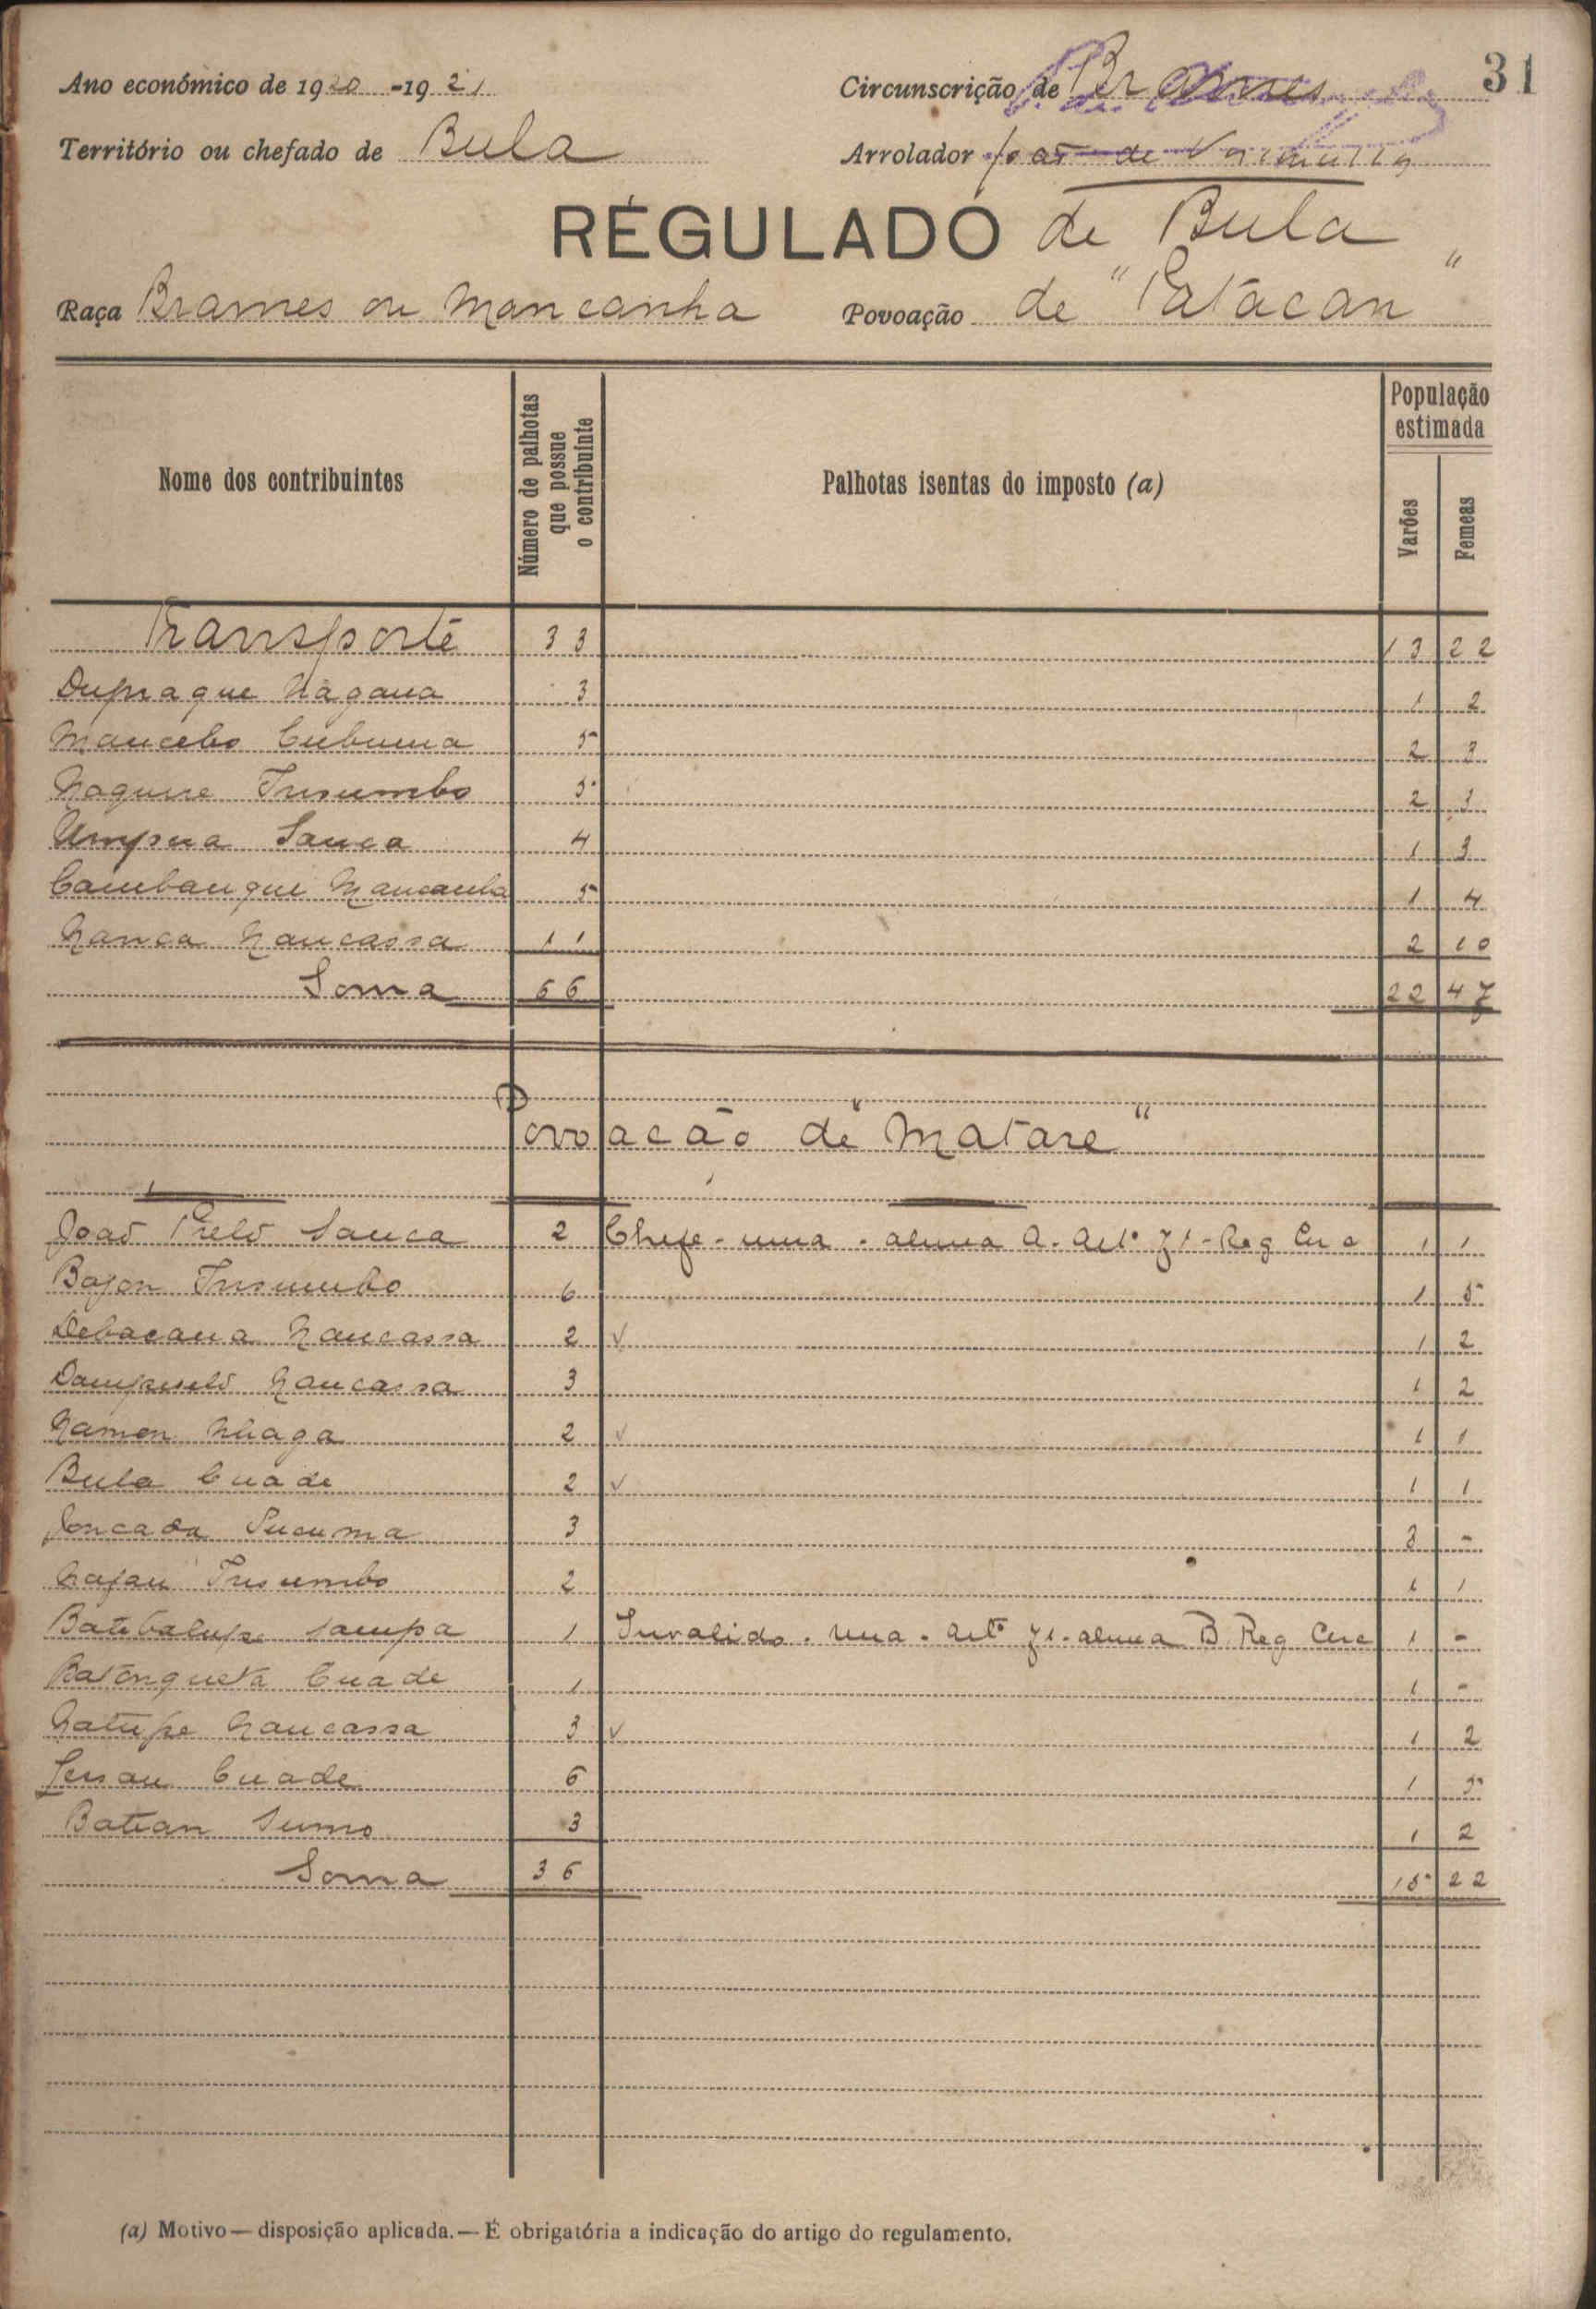 31
Ano económico de 1920-1921 Circunscrição de Brames
Território ou chefado de Bula Arrolador João de
REGULADO de Bula
Raça Brames ou Mancanha Povoação de "Patacan"
Nome dos contribuintes Número de palhotas que possue o contribuinte Palhotas isentas do imposto (a) População estimada Varões Femeas
Transporte 33 13 22
Dupraque Nagana 3 1 2
Mancebo Cubuma 5 2 3
Naquire Insumbo 5 2 3
Umpua Sanca 4 1 3
Cambanque Mancanha 5 1 4
Nanca Nancassa 11 2 10
Soma 66 22 47
Povoacão de "Matare"
João Sanca 2 Chefe - uma - alinea A. Artº 71 - Reg Circ 1 1
Bajon Insumbo 6 1 5
Debacana Nancassa 2 v 1 2
Nancassa 3 1 2
Namon Nhaga 2 v 1 1
Bula Cuade 2 v 1 1
Joncada Sucuma 3 3 -
Najau Insumbo 2 1 1
Batibalupe Sampa 1 Invalido - uma - artº 71 - alinea B. Reg Circ 1 -
Batonqueta Cuade 1 1 -
Natupe Nancassa 3 v 1 2
Cuade 6 1 5
Batian Sumo 3 1 2
Soma 36 15 22
(a) Motivo — disposição aplicada. — É obrigatória a indicação do artigo do regulamento.